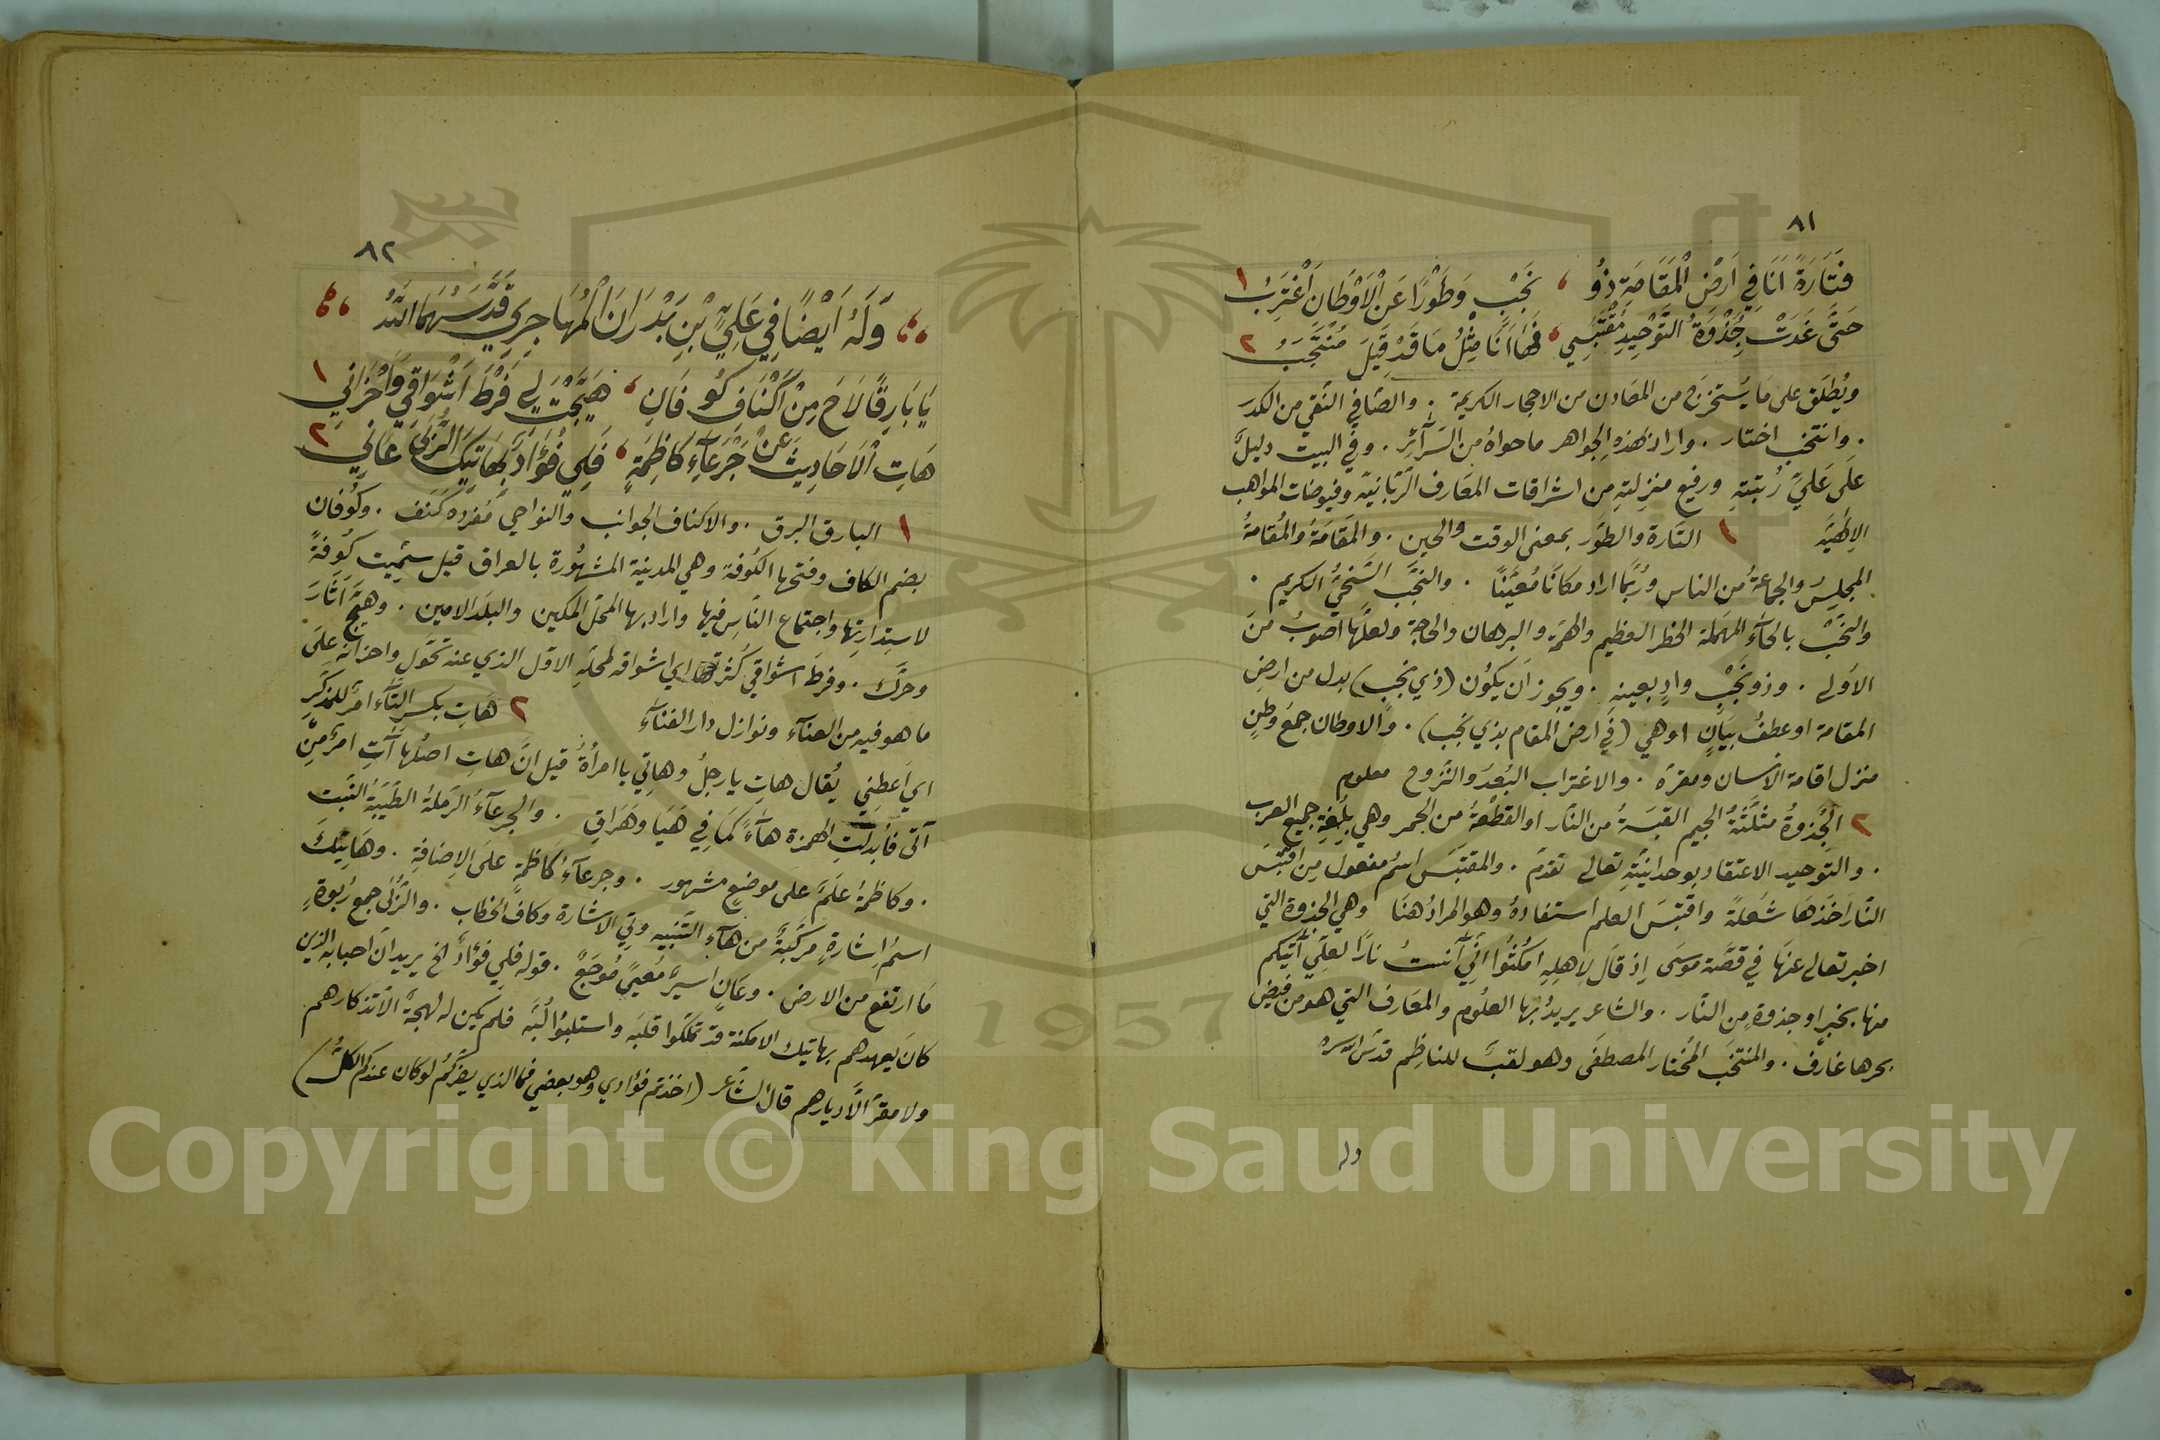 ٨١
فَتَارَةً اَنَا فِي اَرْضِ الْمَقَامَةِ ذُو ، نَجْبٍ وَطَوْرًا عَنِ الْاَوْطَانِ اَغْتَرِبُ ١
حَتَّى غَدَتْ جُذْوَةُ التَّوْحِيدِ مُقْتَبَسِي ، فَهَا اَنَا مِثْلُ مَا قَدْ قِيلَ مُنْتَجَبُ ٢
ويُطلَق على مَا يُستخرَج من المعَادن من الاحجار الكريمة . والصَّافي النَقي من الكدَر
. وانتخب اختار . واراد بهذهِ الجواهر ما حواهُ من السَرآئِر . وفي البيت دليلٌ
عَلَى عَلَيِّ رُتبَتهِ ورفيع منزلتهِ من اشراقات المعَارف الرَّبّانيّة وفيوضات المواهب
الإلهيَّة ١ التَارة والطَّور بمعنى الوقت والحين . والمَقَامَةُ والمُقامةُ
المجلِسُ والجماعةُ من الناس ورُبَّما اراد مكانًا مُعيَّنًا . والنجَّب السَّخيُّ الكريم .
والنحَبُ بالحآءِ المهملة الخطر العظيم والهمَّة والبرهان والحاجة ولعلَّها اَصوَبُ من
الاَولى . وذو نَجْبٍ وادٍ بعينهِ . ويجوز اَن يكوُن (ذي نجب) بدل من ارضِ
المقامة او عطفُ بيَانٍ او هي (في ارض المقام بذي نجب) . والاوطان جمعُ وطنٍ
منزل اقامة الانسان ومقرّه . والاغتراب البُعدُ والنُزوح معلوم
٢ الجُذوةُ مثلَّثةُ الجيم القبَسةُ من النَّار او القطْعةُ من الجمر وهي بلُغةِ جميع العرب
. والتَوحيد الاعتقاد بوحدانيّتهِ تعالى تقدّم . والمقتبَس اسمُ مفعول مِن اقتبَس
النَّار اخَذهَا شُعلةً واقتبسَ العلم استفادهُ وهو المرادُ هنَا وهي الجذوة التي
اخبر تعالى عنهَا في قصَّة موسَى اِذ قَال لِاهلِهِ امكُثُوا انّي آنَستُ نارًا لعلّي آتيكم
منها بخبرٍ او جذوةٍ من النَّار . والشَاعر يريدُ بها العلُوم والمعَارف التي هو من فيضِ
بحرها غارفٌ . والمنتجَب المُختار المصطفَى وهو لقبٌ للناظِم قدّس الله سره
وله
٨٢
وَلَهُ اَيْضًا فِي عَلِيِّ بْنِ بَدْرَانَ الْمُهَاجِرِيِّ قَدَّسَهُمَا اللهُ
يَا بَارِقًا لَاحَ مِنْ اَكْنَافِ كُوفَانِ ، هَيَّجْتَ لِي فَرْطَ اَشْوَاقِي وَاَحْزَانِي ١
هَاتِ الْاَحَادِيثَ عَنْ جَرْعَآءِ كَاظِمَةٍ ، فَلِي فُؤَادٌ بِهَاتِيكَ الرُّبَى عَانِي ٢
١ البارق البرق . والاكناف الجوانب والنواحي مُفردهُ كَنَف . وكوُفان
بضم الكاف وفتحها الكُوفة وهي المدينة المشهُورة بالعراق قيل سُمِّيت كوُفةً
لاستدارتها واجتماع النَّاسِ فيها واراد بها المحلّ المكين والبلَد الامين . وهيَّج اَثَارَ
وحرَّك . وفَرطَ اشواقي كثرتها اي اشواقه لمحلّهِ الاوَّل الذي عنه تحَوّل واحزانهِ علَى
ما هو فيه من العنآء ونوازل دار الفنآء ٢ هَاتِ بكسر التَّآء امرٌ للمذكّر
اي اَعطني يُقال هاتِ يا رجلُ وهاتِي يا امرأةُ قيل انَّ هاتِ اصلُها آتِ امرٌ مِن
آتى فاُبدلَتِ الهمزة هآءً كما في هَيَا وهَرَاقِ . والجرعآءُ الرّملةُ الطّيّبةُ النَّبت
. وكَاظمةُ عَلَمٌ على موضعٍ مشهور . وجرعآءُ كَاظمةٍ علَى الاِضافةِ . وهَاتِيكَ
اسمُ إشارةٍ مركَّبةٌ من هآءِ التنبيه وتي الاشارة وكاف الخطاب . والرُّبَى جمع رُبوةٍ
مَا ارتفع من الارض . وعَانٍ اسيرٌ مُعَيًى مُوجَعٌ . قوله فلي فؤادٌ الخ يريد انَّ احبابه الذين
كانَ يعهدهم بهاتيك الامكنة قد تملّكوا قلبَه واستلبُوا لُبَّه فلم يكن له لهجةٌ الَّا تذكارهم
ولا مقرٌّ الَّا ديارهم قال الشَّاعر (اخذتم فؤادي وهو بعضي فما الذي يضرّكمُ لو كان عندكم الكلُّ)
Copyright © King Saud University
1957